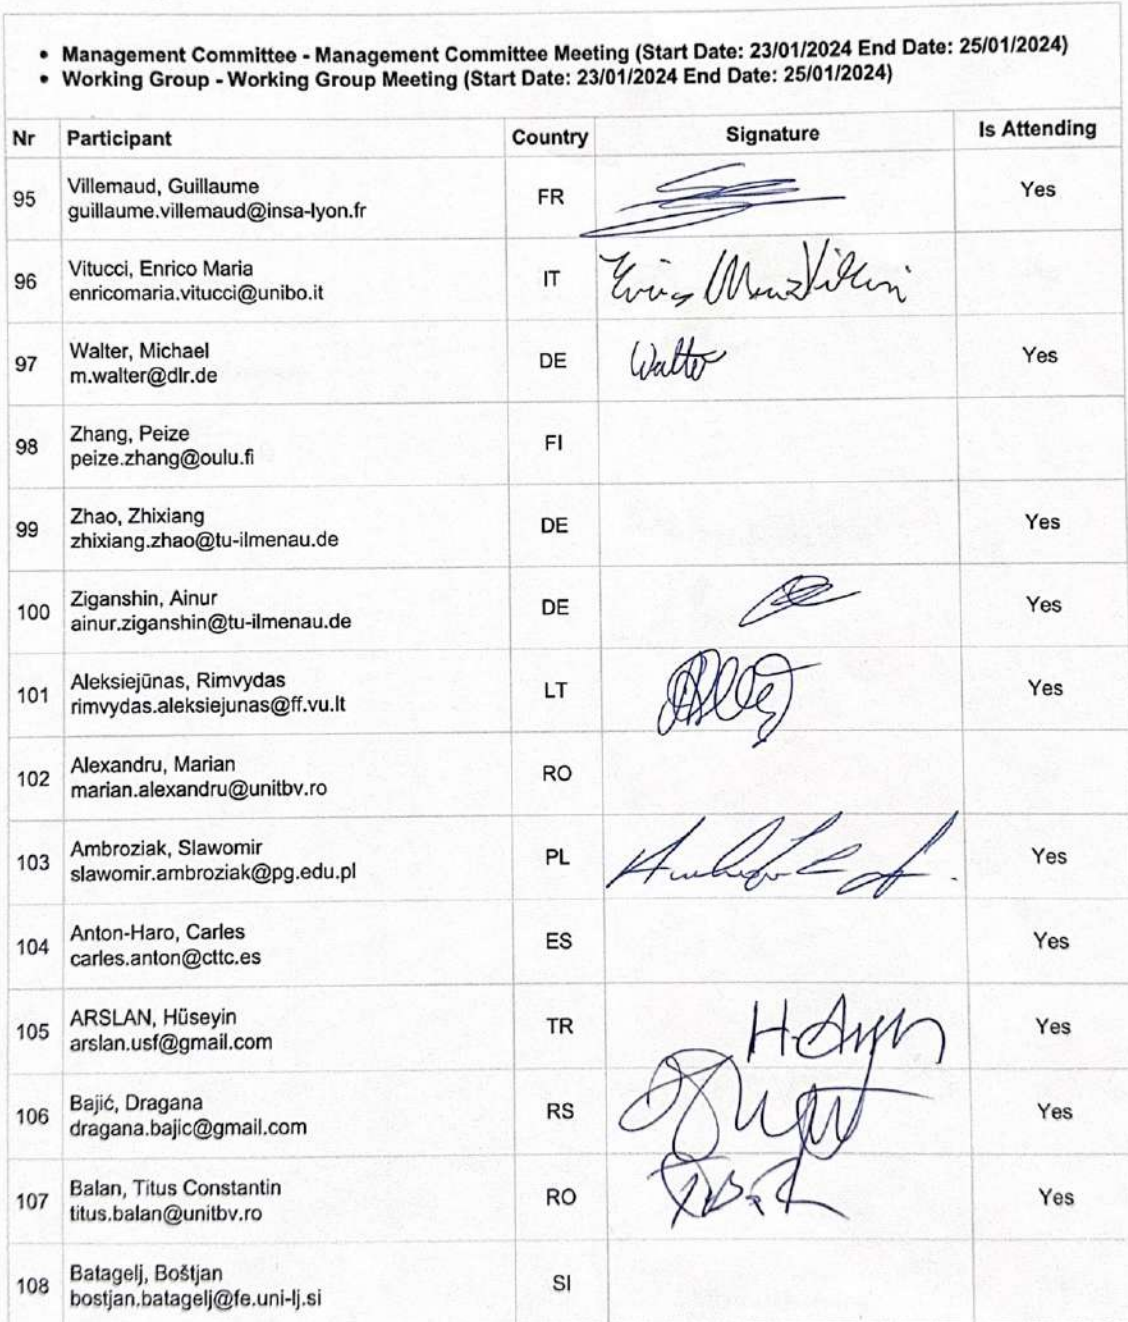 • Management Committee - Management Committee Meeting (Start Date: 23/01/2024 End Date: 25/01/2024)
• Working Group - Working Group Meeting (Start Date: 23/01/2024 End Date: 25/01/2024)
Nr Participant Country Signature Is Attending
95 Villemaud, Guillaume FR Yes
guillaume.villemaud@insa-lyon.fr
96 Vitucci, Enrico Maria IT
enricomaria.vitucci@unibo.it
97 Walter, Michael DE Walter Yes
m.walter@dlr.de
98 Zhang, Peize FI
peize.zhang@oulu.fi
99 Zhao, Zhixiang DE Yes
zhixiang.zhao@tu-ilmenau.de
100 Ziganshin, Ainur DE Yes
ainur.ziganshin@tu-ilmenau.de
101 Aleksiejūnas, Rimvydas LT Yes
rimvydas.aleksiejunas@ff.vu.lt
102 Alexandru, Marian RO
marian.alexandru@unitbv.ro
103 Ambroziak, Slawomir PL Yes
slawomir.ambroziak@pg.edu.pl
104 Anton-Haro, Carles ES Yes
carles.anton@cttc.es
105 ARSLAN, Hüseyin TR Yes
arslan.usf@gmail.com
106 Bajić, Dragana RS Yes
dragana.bajic@gmail.com
107 Balan, Titus Constantin RO Yes
titus.balan@unitbv.ro
108 Batagelj, Boštjan SI
bostjan.batagelj@fe.uni-lj.si